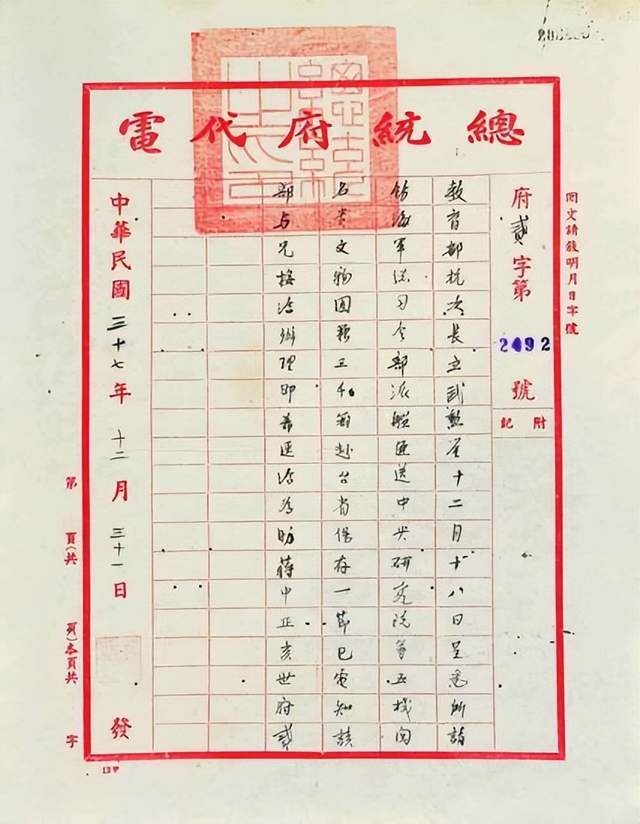 總統府代電
回文請敘明月日字號
府貳字第2492號
附記
教育部杭次長立武勳鑒十二月十八日呈悉所請
飭海軍總司令部派艦運送中央研究院等五機関
名貴文物圖籍三千箱赴台省保存一節已電知該
部与兄接洽辦理即希逕洽為盼蔣中正亥世府貳
中華民國三十七年十二月三十一日發
第 頁(共 頁)本頁共 字